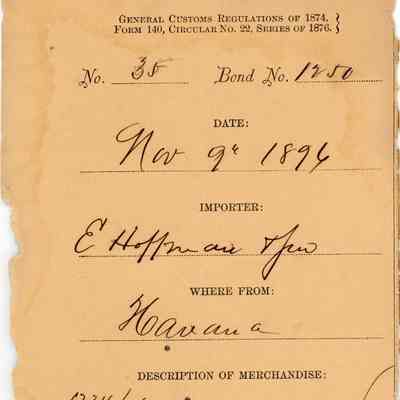 GENERAL CUSTOMS REGULATIONS OF 1874.
FORM 140, CIRCULAR NO. 22, SERIES OF 1876.
No. 35 Bond No. 1250
DATE:
Nov 9" 1896
IMPORTER:
E Hoffman & Son
WHERE FROM:
Havana
DESCRIPTION OF MERCHANDISE: